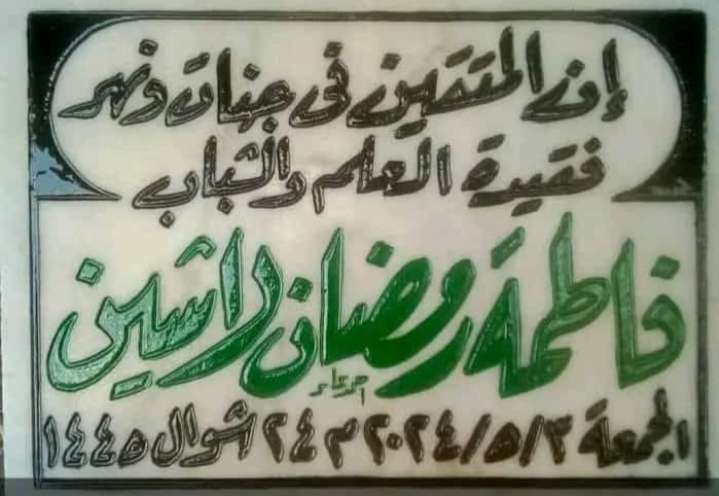 إن المتقين في جنات ونهر
فقيدة العلم والشباب
فاطمة رمضان راشين
الجمعة ٢٠٢٤/٥/٣م ٢٤ شوال ١٤٤٥